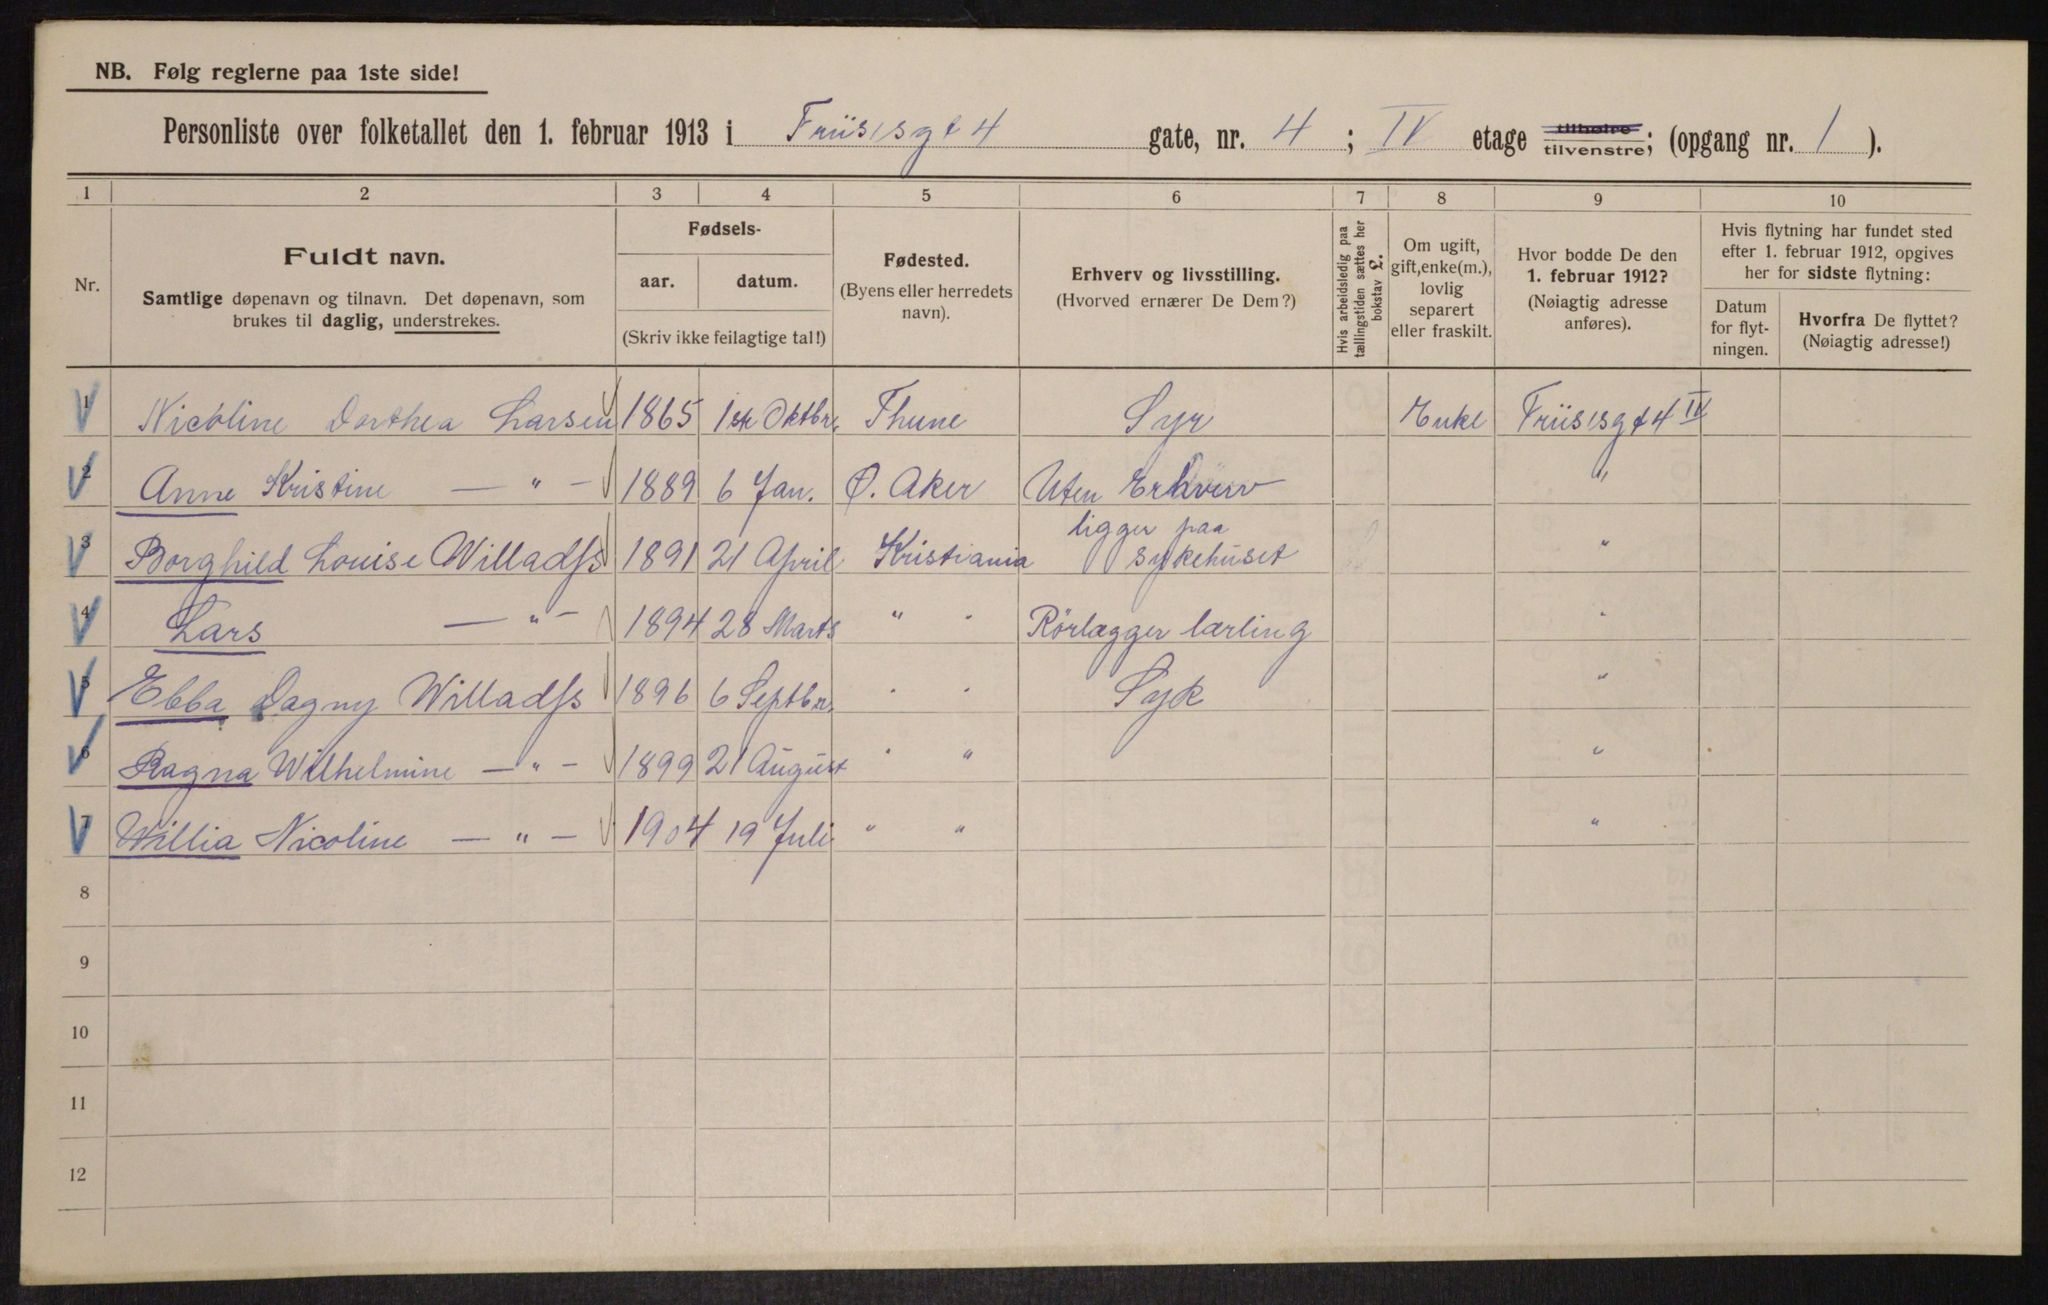 NB. Følg reglerne paa 1ste side!
Personliste over folketallet den 1. februar 1913 i Friisisgt 4 gate, nr. 4 ; IV etage tilhøire tilvenstre; (opgang nr. 1 ).
1 2 3 4 5 6 7 8 9 10
Nr.
Fuldt navn.
Samtlige døpenavn og tilnavn. Det døpenavn, som
brukes til daglig, understrekes.
Fødsels-
aar. datum.
(Skriv ikke feilagtige tal!)
Fødested.
(Byens eller herredets
navn).
Erhverv og livsstilling.
(Hvorved ernærer De Dem?)
Hvis arbeidsledig paa
tællingstiden sættes her
bokstav L.
Om ugift,
gift, enke(m.),
lovlig
separert
eller fraskilt.
Hvor bodde De den
1. februar 1912?
(Nøiagtig adresse
anføres).
Hvis flytning har fundet sted
efter 1. februar 1912, opgives
her for sidste flytning:
Datum
for flyt-
ningen.
Hvorfra De flyttet?
(Nøiagtig adresse!)
1 Nicoline Dorthea Larsen 1865 1ste Oktbr. Thune Syr Enke Friisisgt 4 IV
2 Anne Kristine — " — 1889 6 Jan. Ø. Aker Uten Erhverv "
3 Borghild Louise Willadss 1891 21 April Kristiania ligger paa sykehuset "
4 Lars — " — 1894 28 Marts " " Rörlægger lærling "
5 Ebba Dagny Willadss 1896 6 Septbr. " " Syk "
6 Ragna Wilhelmine — " — 1899 21 August " " "
7 Willia Nicoline — " — 1904 19 Juli " " "
8
9
10
11
12